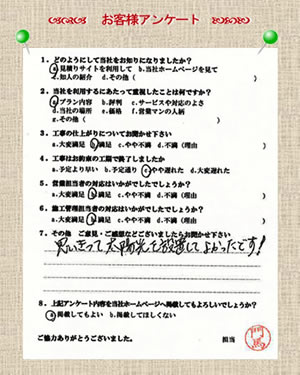 お客様アンケート
1.どのようにして当社をお知りになりましたか?
a.見積りサイトを利用して b.当社ホームページを見て
c.知人の紹介 d.その他( )
2.当社を利用するにあたって重視したことは何ですか?
a.プラン内容 b.評判 c.サービスや対応のよさ
d.当社の場所 e.価格 f.営業マンの人柄
g.その他( )
3.工事の仕上がりについてお聞かせ下さい
a.大変満足 b.満足 c.やや不満 d.不満(理由 )
4.工事はお約束の工期で終了しましたか
a.予定より早い b.予定通り c.やや遅れた d.大変遅れた
5.営業担当者の対応はいかがでしたでしょうか?
a.大変満足 b.満足 c.やや不満 d.不満(理由 )
6.施工管理担当者の対応はいかがでしたでしょうか?
a.大変満足 b.満足 c.やや不満 d.不満(理由 )
7.その他 ご意見・ご感想などございましたらお聞かせ下さい
思いきって太陽光を設置してよかったです!
8.上記アンケート内容を当社ホームページへ掲載してもよろしいでしょうか?
a.掲載してもよい b.掲載してほしくない
ご協力ありがとうございました。 担当